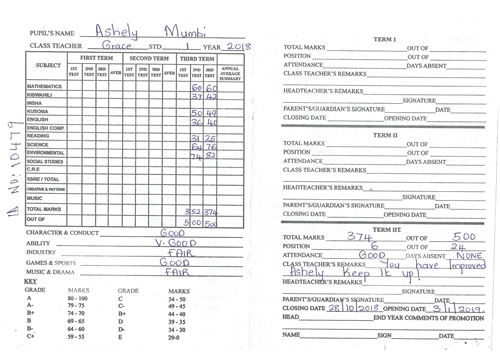 PUPIL'S NAME Ashely Mumbi
CLASS TEACHER Grace STD 1 YEAR 2018
SUBJECT FIRST TERM SECOND TERM THIRD TERM ANNUAL AVERAGE SUMMARY
1ST TEST 2ND TEST 3RD TEST AVER 1ST TEST 2ND TEST 3RD TEST 1ST TEST 2ND TEST 3RD TEST
MATHEMATICS 60 60
KISWAHILI 37 42
INSHA
KUSOMA 50 49
ENGLISH 36 40
ENGLISH COMP.
READING 31 25
SCIENCE 64 76
ENVIRONMENTAL 74 82
SOCIAL STUDIES
C.R.E
SSRE / TOTAL
CREATIVE & PATTERN
MUSIC
TOTAL MARKS 352 374
OUT OF 500 500
CHARACTER & CONDUCT GOOD
ABILITY V. GOOD
INDUSTRY FAIR
GAMES & SPORTS GOOD
MUSIC & DRAMA FAIR
KEY
GRADE MARKS GRADE MARKS
A 80 - 100 C 54 - 50
A- 79 - 75 C- 49 - 45
B+ 74 - 70 B+ 44 - 40
B 69 - 65 D 39 - 35
B- 64 - 60 D- 34 - 30
C+ 59 - 55 E 29-0
ID NO: 10479
TERM I
TOTAL MARKS OUT OF
POSITION OUT OF
ATTENDANCE DAYS ABSENT
CLASS TEACHER'S REMARKS
HEADTEACHER'S REMARKS
SIGNATURE
PARENT'S/GUARDIAN'S SIGNATURE
CLOSING DATE OPENING DATE
TERM II
TOTAL MARKS OUT OF
POSITION OUT OF
ATTENDANCE DAYS ABSENT
CLASS TEACHER'S REMARKS
HEADTEACHER'S REMARKS
SIGNATURE
PARENT'S/GUARDIAN'S SIGNATURE
CLOSING DATE OPENING DATE
TERM III
TOTAL MARKS 374 OUT OF 500
POSITION 6 OUT OF 24
ATTENDANCE GOOD DAYS ABSENT NONE
CLASS TEACHER'S REMARKS You have Improved
Ashely Keep It up!
HEADTEACHER'S REMARKS
SIGNATURE
PARENT'S/GUARDIAN'S SIGNATURE
CLOSING DATE 28/10/2018 OPENING DATE 3/1/2019.
HEAD END YEAR COMMENTS OF PROMOTION
NAME SIGN DATE